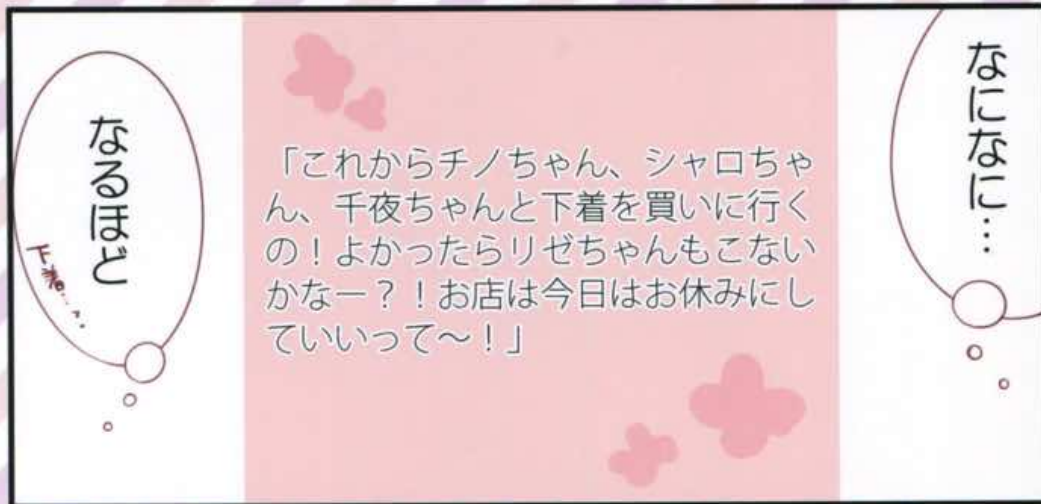 なになに…
「これからチノちゃん、シャロちゃ
ん、千夜ちゃんと下着を買いに行く
の！よかったらリゼちゃんもこない
かなー？！お店は今日はお休みにし
ていいって～！」
なるほど
下着…..